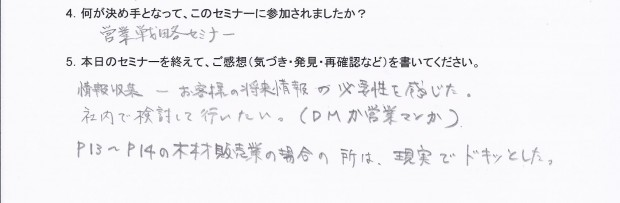 4. 何が決め手となって、このセミナーに参加されましたか？
営業戦略セミナー
5. 本日のセミナーを終えて、ご感想（気づき・発見・再確認など）を書いてください。
情報収集 ― お客様の将来情報の必要性を感じた。
社内で検討して行いたい。（DMか営業マンか）
P13～P14の木材販売業の場合の所は、現実でドキッとした。